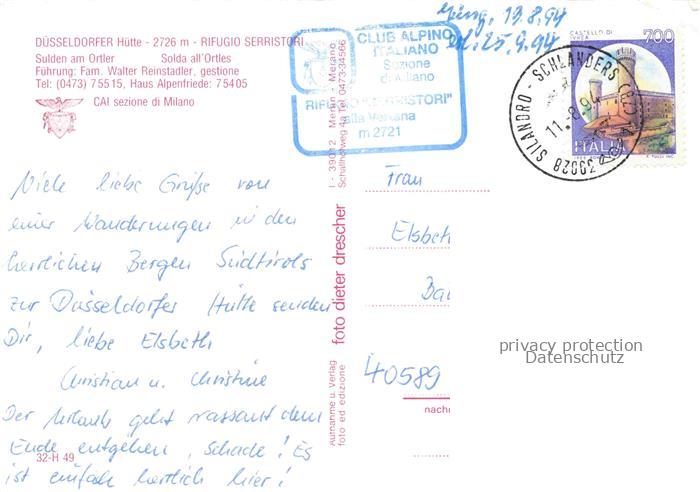 DÜSSELDORFER Hütte - 2726 m - RIFUGIO SERRISTORI
Sulden am Ortler Solda all'Ortles
Führung: Fam. Walter Reinstadler, gestione
Tel: (0473) 75515, Haus Alpenfriede: 75405
CAI sezione di Milano
CLUB ALPINO
ITALIANO
Sezione
di Milano
RIFUGIO "SERRISTORI"
alla Vertana
m 2721
13.8.94
25.9.94
CASTELLO DI
IVREA
700
ITALIA
SILANDRO - SCHLANDERS (BZ)
11.8.94
39028
Viele liebe Grüße von
einer Wanderungen in den
herrlichen Bergen Südtirols
zur Düsseldorfer Hütte senden
Dir, liebe Elsbeth
Christian u. Christine
Der Urlaub geht rassant dem
Ende entgehen, schade! Es
ist einfach herrlich hier!
32-H 49
I - 39012 Meran - Merano
Schallhofweg 4a Tel. 0473-34566
foto dieter drescher
Aufnahme u. Verlag
foto ed edizione
Frau
Elsbeth
40589
nach
privacy protection
Datenschutz